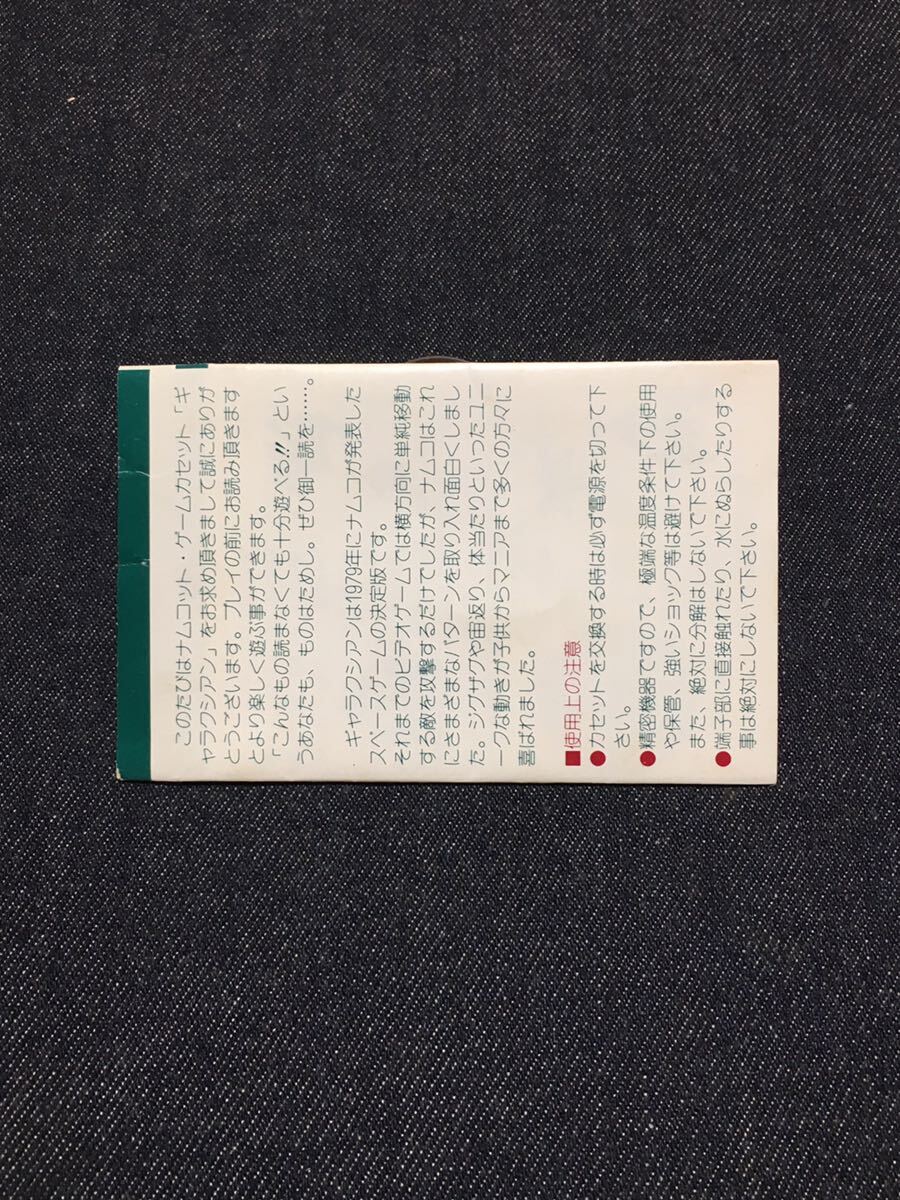 このたびはナムコット・ゲームカセット「ギ
ャラクシアン」をお求め頂きまして誠にありが
とうございます。プレイの前にお読み頂きます
とより楽しく遊ぶ事ができます。
「こんなもの読まなくても十分遊べる!!」とい
うあなたも、ものはためし。ぜひ御一読を……。
ギャラクシアンは1979年にナムコが発表した
スペースゲームの決定版です。
それまでのビデオゲームでは横方向に単純移動
する敵を攻撃するだけでしたが、ナムコはこれ
にさまざまなパターンを取り入れ面白くしまし
た。ジグザグや宙返り、体当たりといったユニ
ークな動きが子供からマニアまで多くの方々に
喜ばれました。
■使用上の注意
●カセットを交換する時は必ず電源を切って下
さい。
●精密機器ですので、極端な温度条件下の使用
や保管、強いショック等は避けて下さい。
また、絶対に分解はしないで下さい。
●端子部に直接触れたり、水にぬらしたりする
事は絶対にしないで下さい。